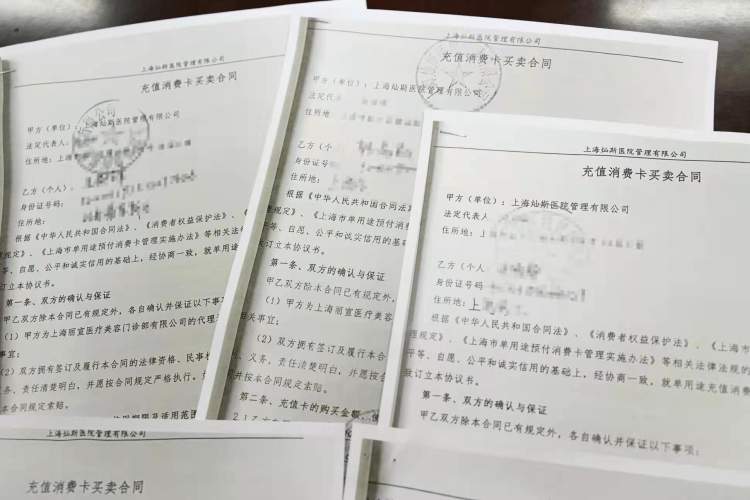 上海灿斯医院管理有限公司
充值消费卡买卖合同
甲方（单位）：
法定代表人
住所地：上海
乙方（个人）
身份证号码：
住所地：
根据《中华人民共和国合同法》、《消费者权益保护法》、《
规定》、《上海市单用途预付消费卡管理实施办法》等相关法律
等、自愿、公平和诚实信用的基础上，经协商一致，就单用途
订立本协议书。
第一条、双方的确认与保证
甲乙双方除本合同已有规定外，各自确认并保证以下事项
（1）甲方为上海丽宣医疗美容门诊部有限公司的代理
事宜；
（2）双方拥有签订及履行本合同的法律资格、民事权
义务、责任清楚明白，并愿按合同规定严格执行。
合同规定索赔。
期限及适用范围
上海灿斯医院管理有限公司
充值消费卡买卖合同
甲方（单位）：上海灿斯医院管理有限公司
法定代表
住所地：
乙方（个人）
身份证号
住所地：
根据《中华人民共和国合同法
规定》、《上海市单用途预付
等、自愿、公平和诚实信用的基础
订立本协议书。
第一条、双方的确认与保证
甲乙双方除本合同已有规定外，
（1）甲方为上海丽宣医疗美容
相关事宜；
（2）双方拥有签订及履行本合
、义务、责任清楚明白，并愿按
并按本合同规定索赔。
第二条、充值卡的购买金额
2.1乙方
上海灿斯医院管理有限公司
充值消费卡买卖合同
甲方（单位）：上海灿斯医院管理有限公司
法定代表人
住所地：
乙方（个人
身份证号码
住所地：上
根据《中华人民共和国合同法》、《消费者权益保护法》、
理规定》、《上海市单用途预付消费卡管理实施办法》等相关法律法规的
平等、自愿、公平和诚实信用的基础上，经协商一致，就单用途充值消费
致订立本协议书。
第一条、双方的确认与保证
甲乙双方除本合同已有规定外，各自确认并保证以下事项：
上海灿斯医院管理有限公司
充值消费卡买卖合同